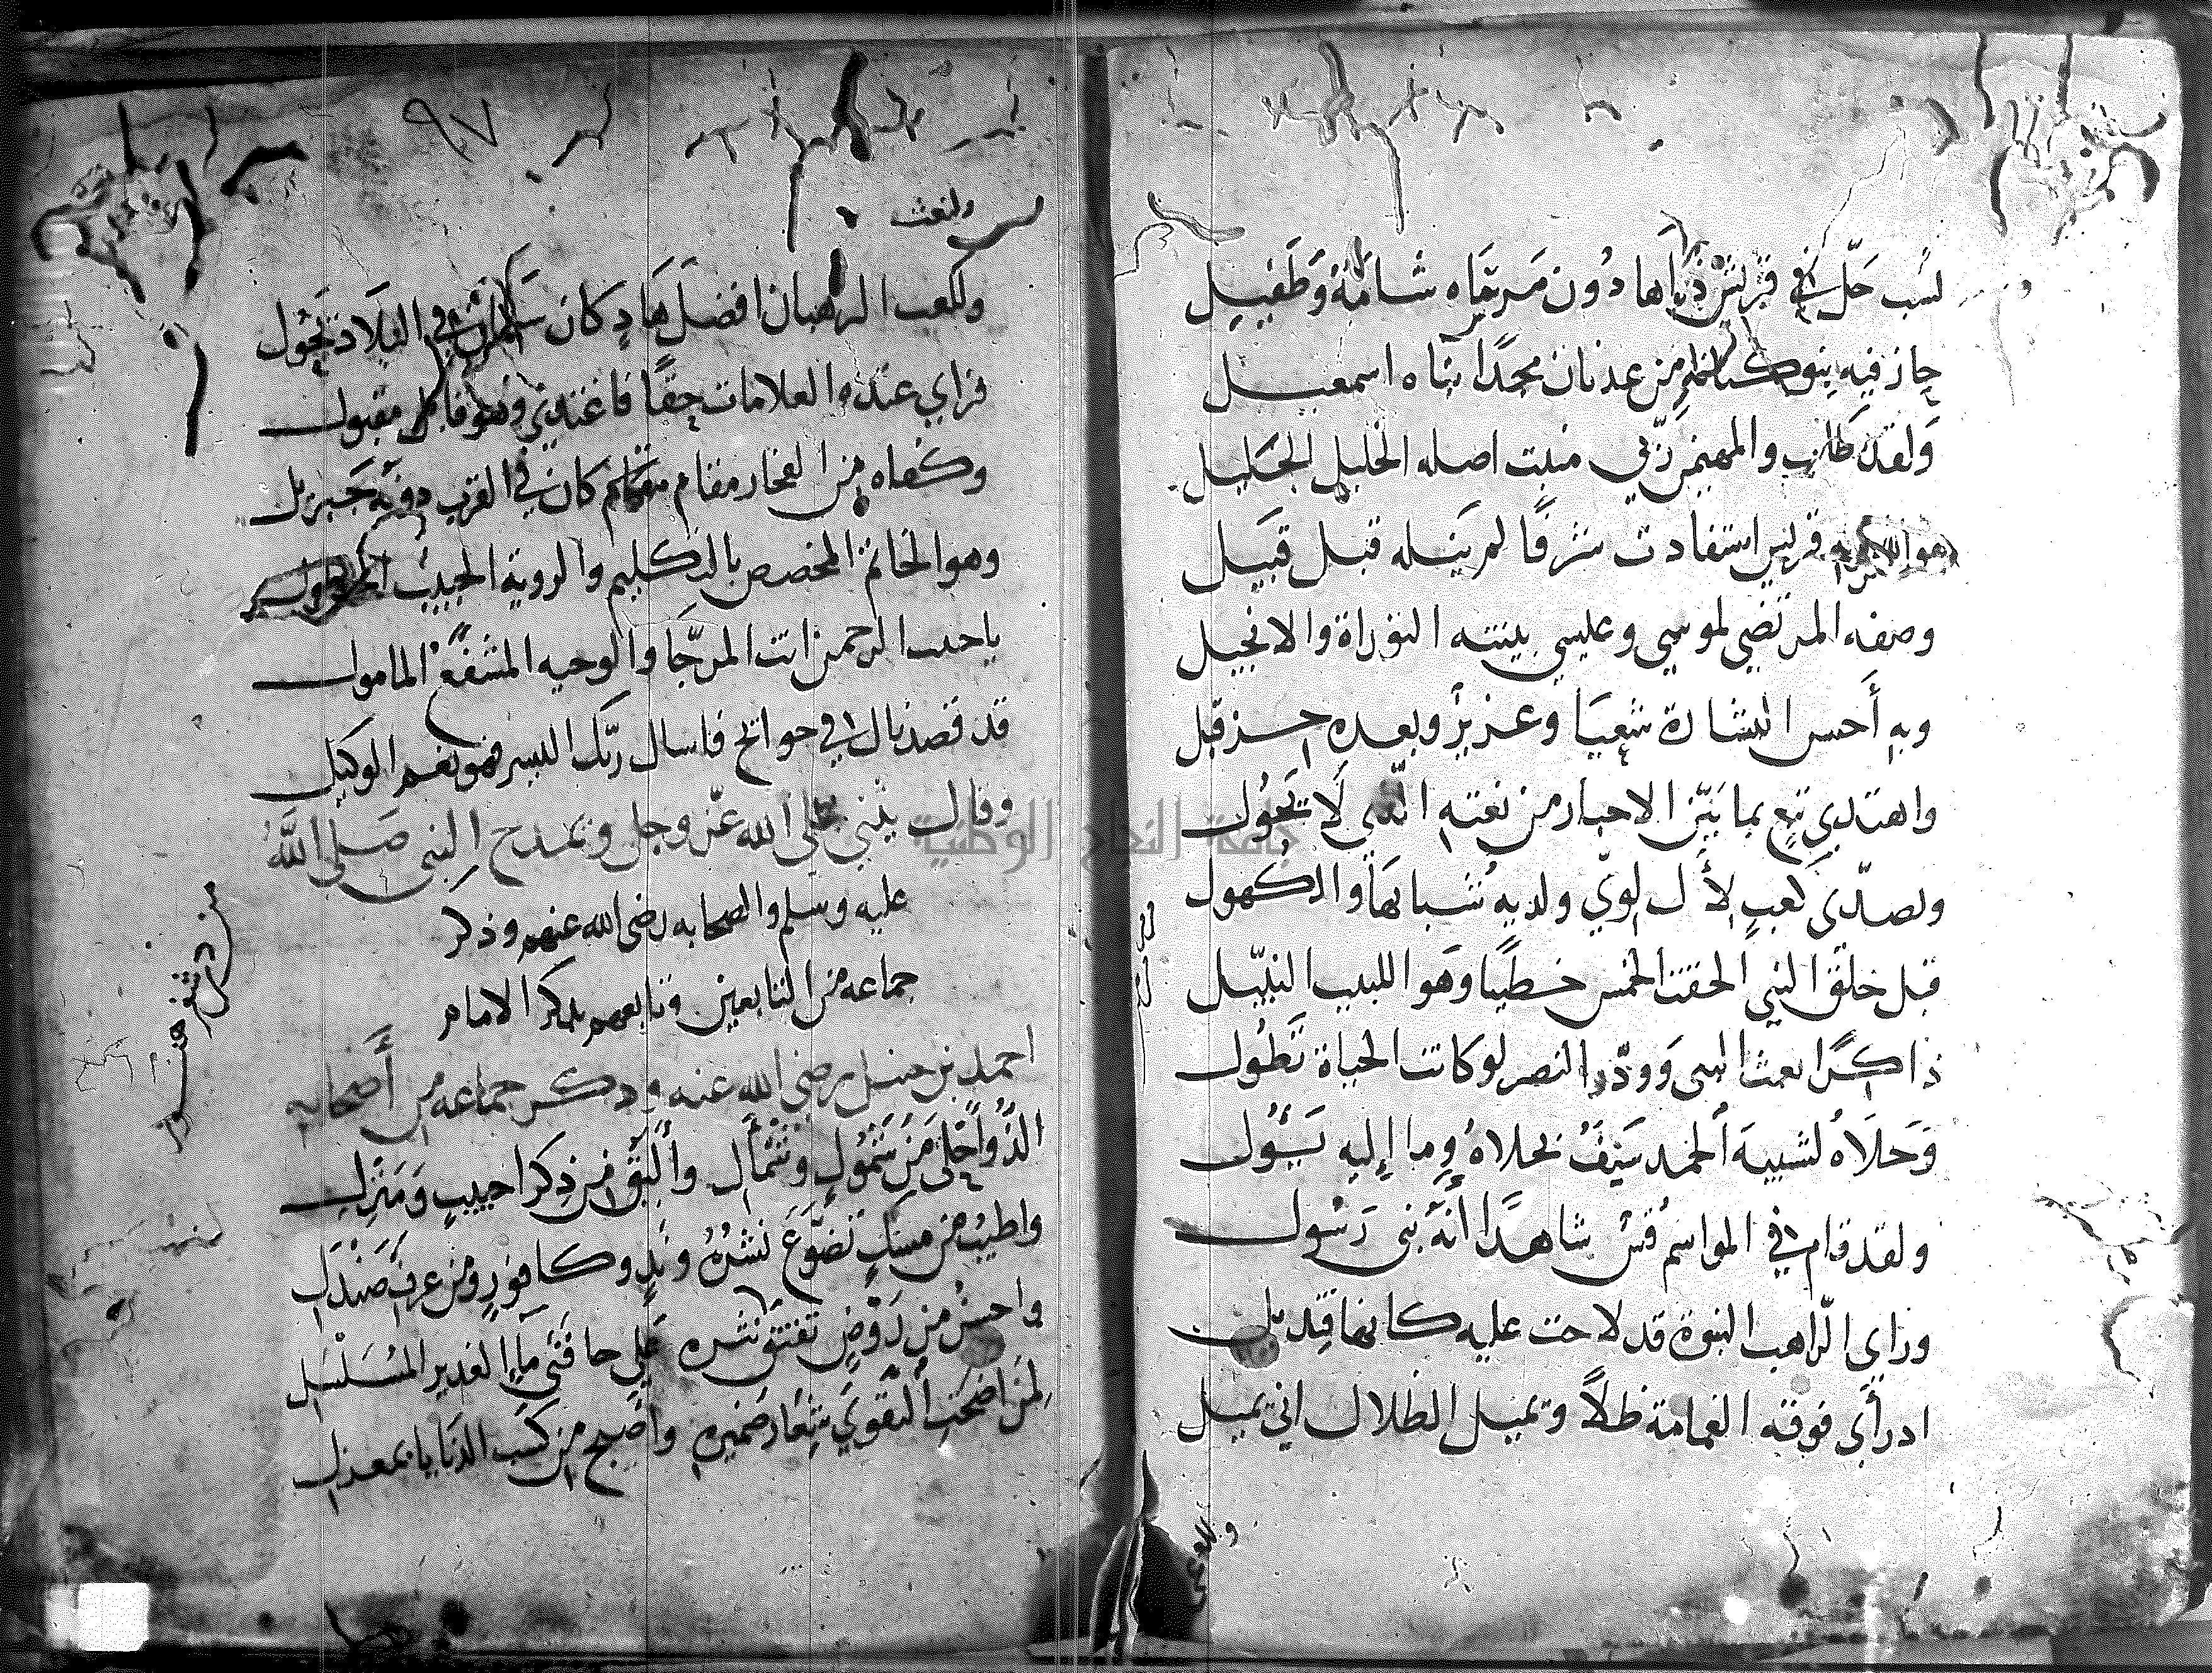 نسب حلّ في قريش ذراها دون مرقاه شامة وطفيل
حاز فيه بنو كنانة من عدنان مجدًا بناه اسمعيل
ولقد طاب والمهيمن ربّي منبت اصله الخليل الجليل
قريش استفادت شرفًا لم ينله قبل قبيل
وصفه المرتضي لموسي وعيسي بينته التوراة والانجيل
وبه أحسن البشارة شعيا وعزيز وبعده حزقيل
واهتدي تبع بما بيّن الاحبار من نعته الذي لا يحول
وتصدّى كعب لأل لويّ ولديه شبابها والكهول
قبل خلق النبي الحقت الخمس خطيبًا وهو اللبيب النبيل
ذاكرًا بعث النبي وودّ النصر لو كانت الحياة تطول
وحلاه لشيبة الحمد سيف بحلاه وما إليه يؤل
ولقد قام في المواسم قس شاهدا أنه نبي رسول
وراي الراهب النبوة قد لاحت عليه كانها قنديل
اذ رأى فوقه الغمامة ظلاً وتميل الظلال اني يميل
وللعت
٩٧
ولنعت
ولنعت الرهبان افضل هاد كان سلمان في البلاد يجول
فراي عنده العلامات حقًا فاغتدي وهو قابل مقبول
وكفاه من الفخار مقام كان في القرب دونه جبريل
وهو الخاتم المخصص بالتكليم والروية الحبيب
يا حبيب الرحمن انت المرجّا والوجيه المشفّع المامول
قد قصدناك في حوائج فاسال ربّك اليسر فهو نعم الوكيل
وقال يثني على الله عزّ وجل ويمدح النبي صلى الله
عليه وسلم والصحابه رضى الله عنهم وذكر
جماعة من التابعين وتابعيهم بذكر الامام
احمد بن حنبل رضي الله عنه وذكر جماعه من أصحابه
الذّ واحلى من شمول وشمأل وأليق من ذكرا حبيب ومنزل
واطيب من مسك تضوّع نشره وندّ وكافور ومن عرف صندل
واحسن من روض تفتق نشره على حافتي ماء الغدير المسلسل
لمن اضحت التقوي شعار ضميره واصبح من كسب الدنايا بمعزل
جامعة النجاح الوطنية